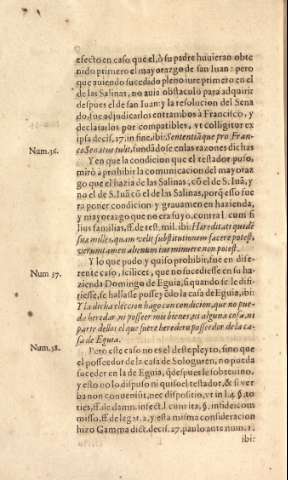 efecto en caso que el, ò su padre huuieran obte
nido primero el mayorazgo de san Iuan: pero
que auiendo sucedido pleno iure primero en el
de las Salinas, no auia obstaculo para adquirir
despues el de san Iuan: y la resolucion del Sena
do, fue adjudicarlos entrambos à Francisco, y
declararlos por compatibles, vt colligitur ex
ipsa decis. 17. in fine. ibi: Sententiáque pro Fran-
Num.36. cisco Senatus tulit, fundádose en las razones dichas
Y en que la condicion que el testador puso,
mirò a prohibir la comunicacion del mayoraz
go que el hazia de las Salinas, cõ el de S. Iuã, y
no el de S. Iuã cõ el de las Salinas, porq̃ esso fue
ra poner condicion y grauamen en hazienda,
y mayorazgo que no era suyo, contra l. cum fi
lius familias, ff. de test. mil. ibi: Hæreditati quidé
sua miles, quam velit, substitutionem facere potest,
verumtamen alienum ius minuere non potest.
Num 37. Y lo que pudo y quiso prohibir, fue en dife
rente caso, scilicet, que no sucediesse en su ha
zienda Domingo de Eguia, si quando se le defi
riesse, se hallasse posseedor de la casa de Eguia, ibi:
Y la dicha eleccion hago con condicion, que no pue-
da heredar, ni posseer mis bienes, ni alguna cosa, ni
parte dellos el que fuere heredero y posseedor de la ca-
sa de Eguia.
Num.38. Pero este caso no es el deste pleyto, sino que
el posseedor de la casa de Sologuren, no pueda
suceder en la de Eguia, q̃ despues le sobreuino,
y esto no lo dispuso ni quiso el testador, & si ver
ba non conueniunt, nec dispositio, vt in l. 4. §. to-
ties, ff. de damn. infect. l. cum ita, §. in fideicom
misso, ff. de legat. 2. y esta misma consideracion
hizo Gamma dict. decis. 17. paulo ante num. 1.
ibi: